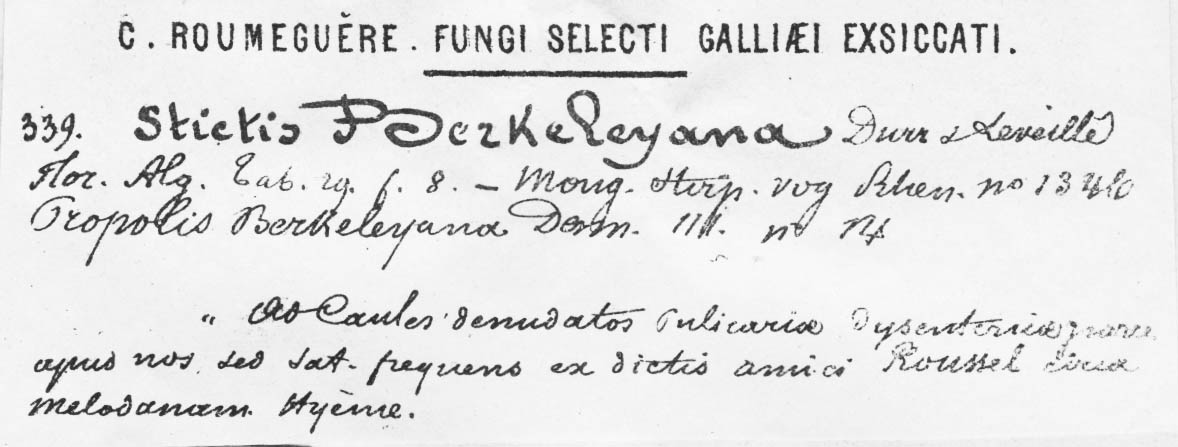 C. ROUMEGUÈRE. FUNGI SELECTI GALLIÆI EXSICCATI.
339. Stictis Berkeleyana Durr & Leveillé
Flor. Alg. Tab. 29. f. 8. – Moug. Stirp. vog Rhen. no 1340
Propolis Berkeleyana Desm. no 14
„ Ad Caules denudatos Pulicariæ Dysentericæ
apud nos, sed sat. frequens ex dictis amici Roussel circa
melodanam. Hyème.